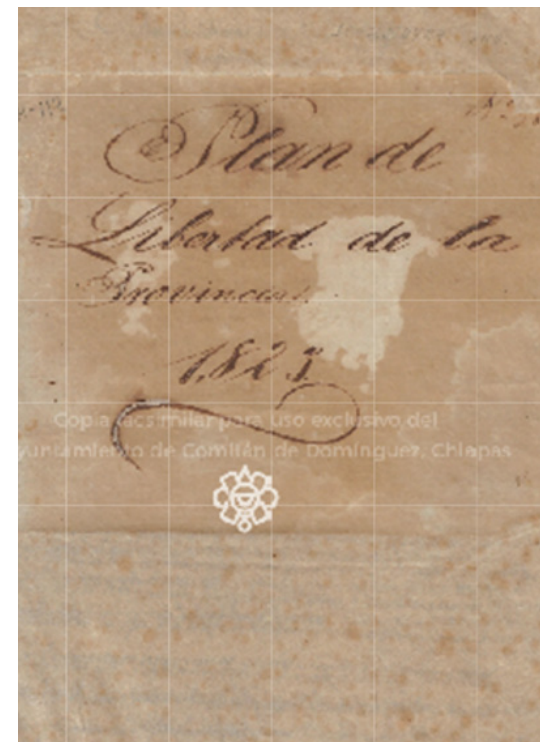 Plan de
Libertad de la
Provincia
1823
Copia facsimilar para uso exclusivo del
yuntamiento de Comitán de Domínguez, Chiapas